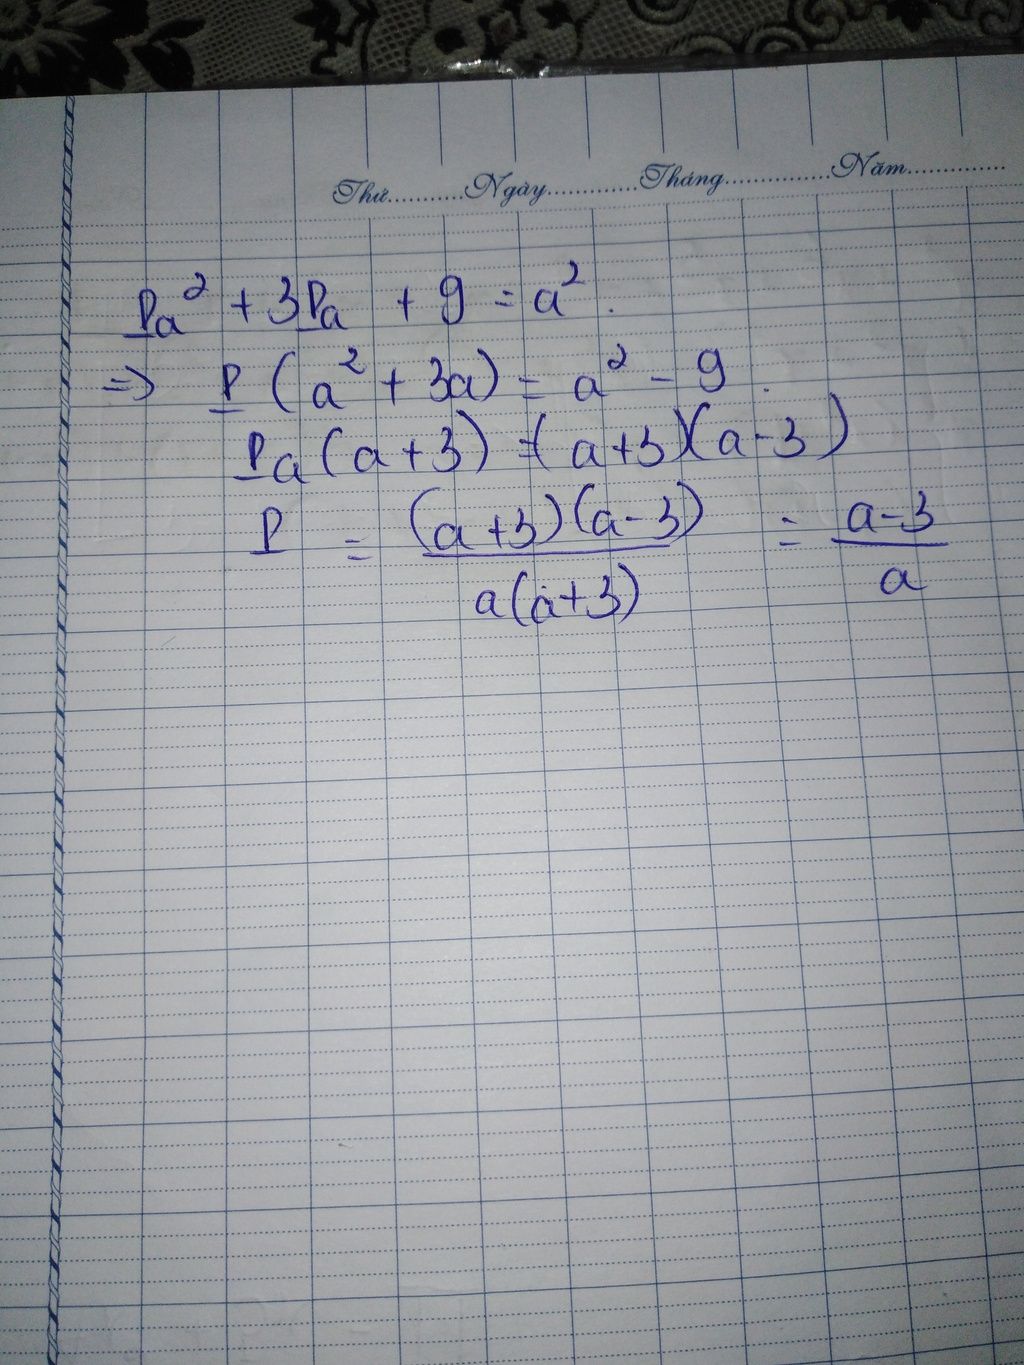 Thứ...........Ngày............Tháng..............Năm..............
Pa² + 3Pa + 9 = a².
=> P (a² + 3a) = a² - 9.
Pa (a + 3) = (a+3)(a-3)
P = (a+3)(a-3) / a(a+3) = a-3 / a